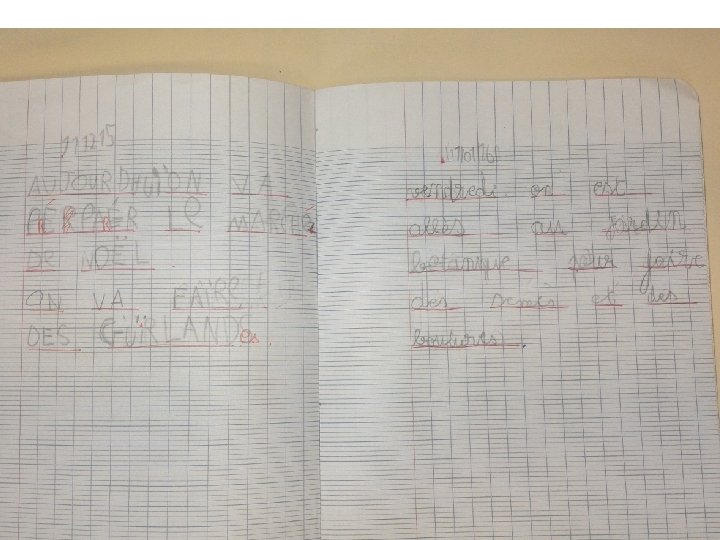 11 12 15
AUJOURD'HUI ON VA
PÉRPARÉR LE MARCHÉ
DE NOËL
ON VA FAIRE
DES GUIRLANDes.
vendredi on est
allés au jardin
botanique pour faire
des semis et des
boutures.